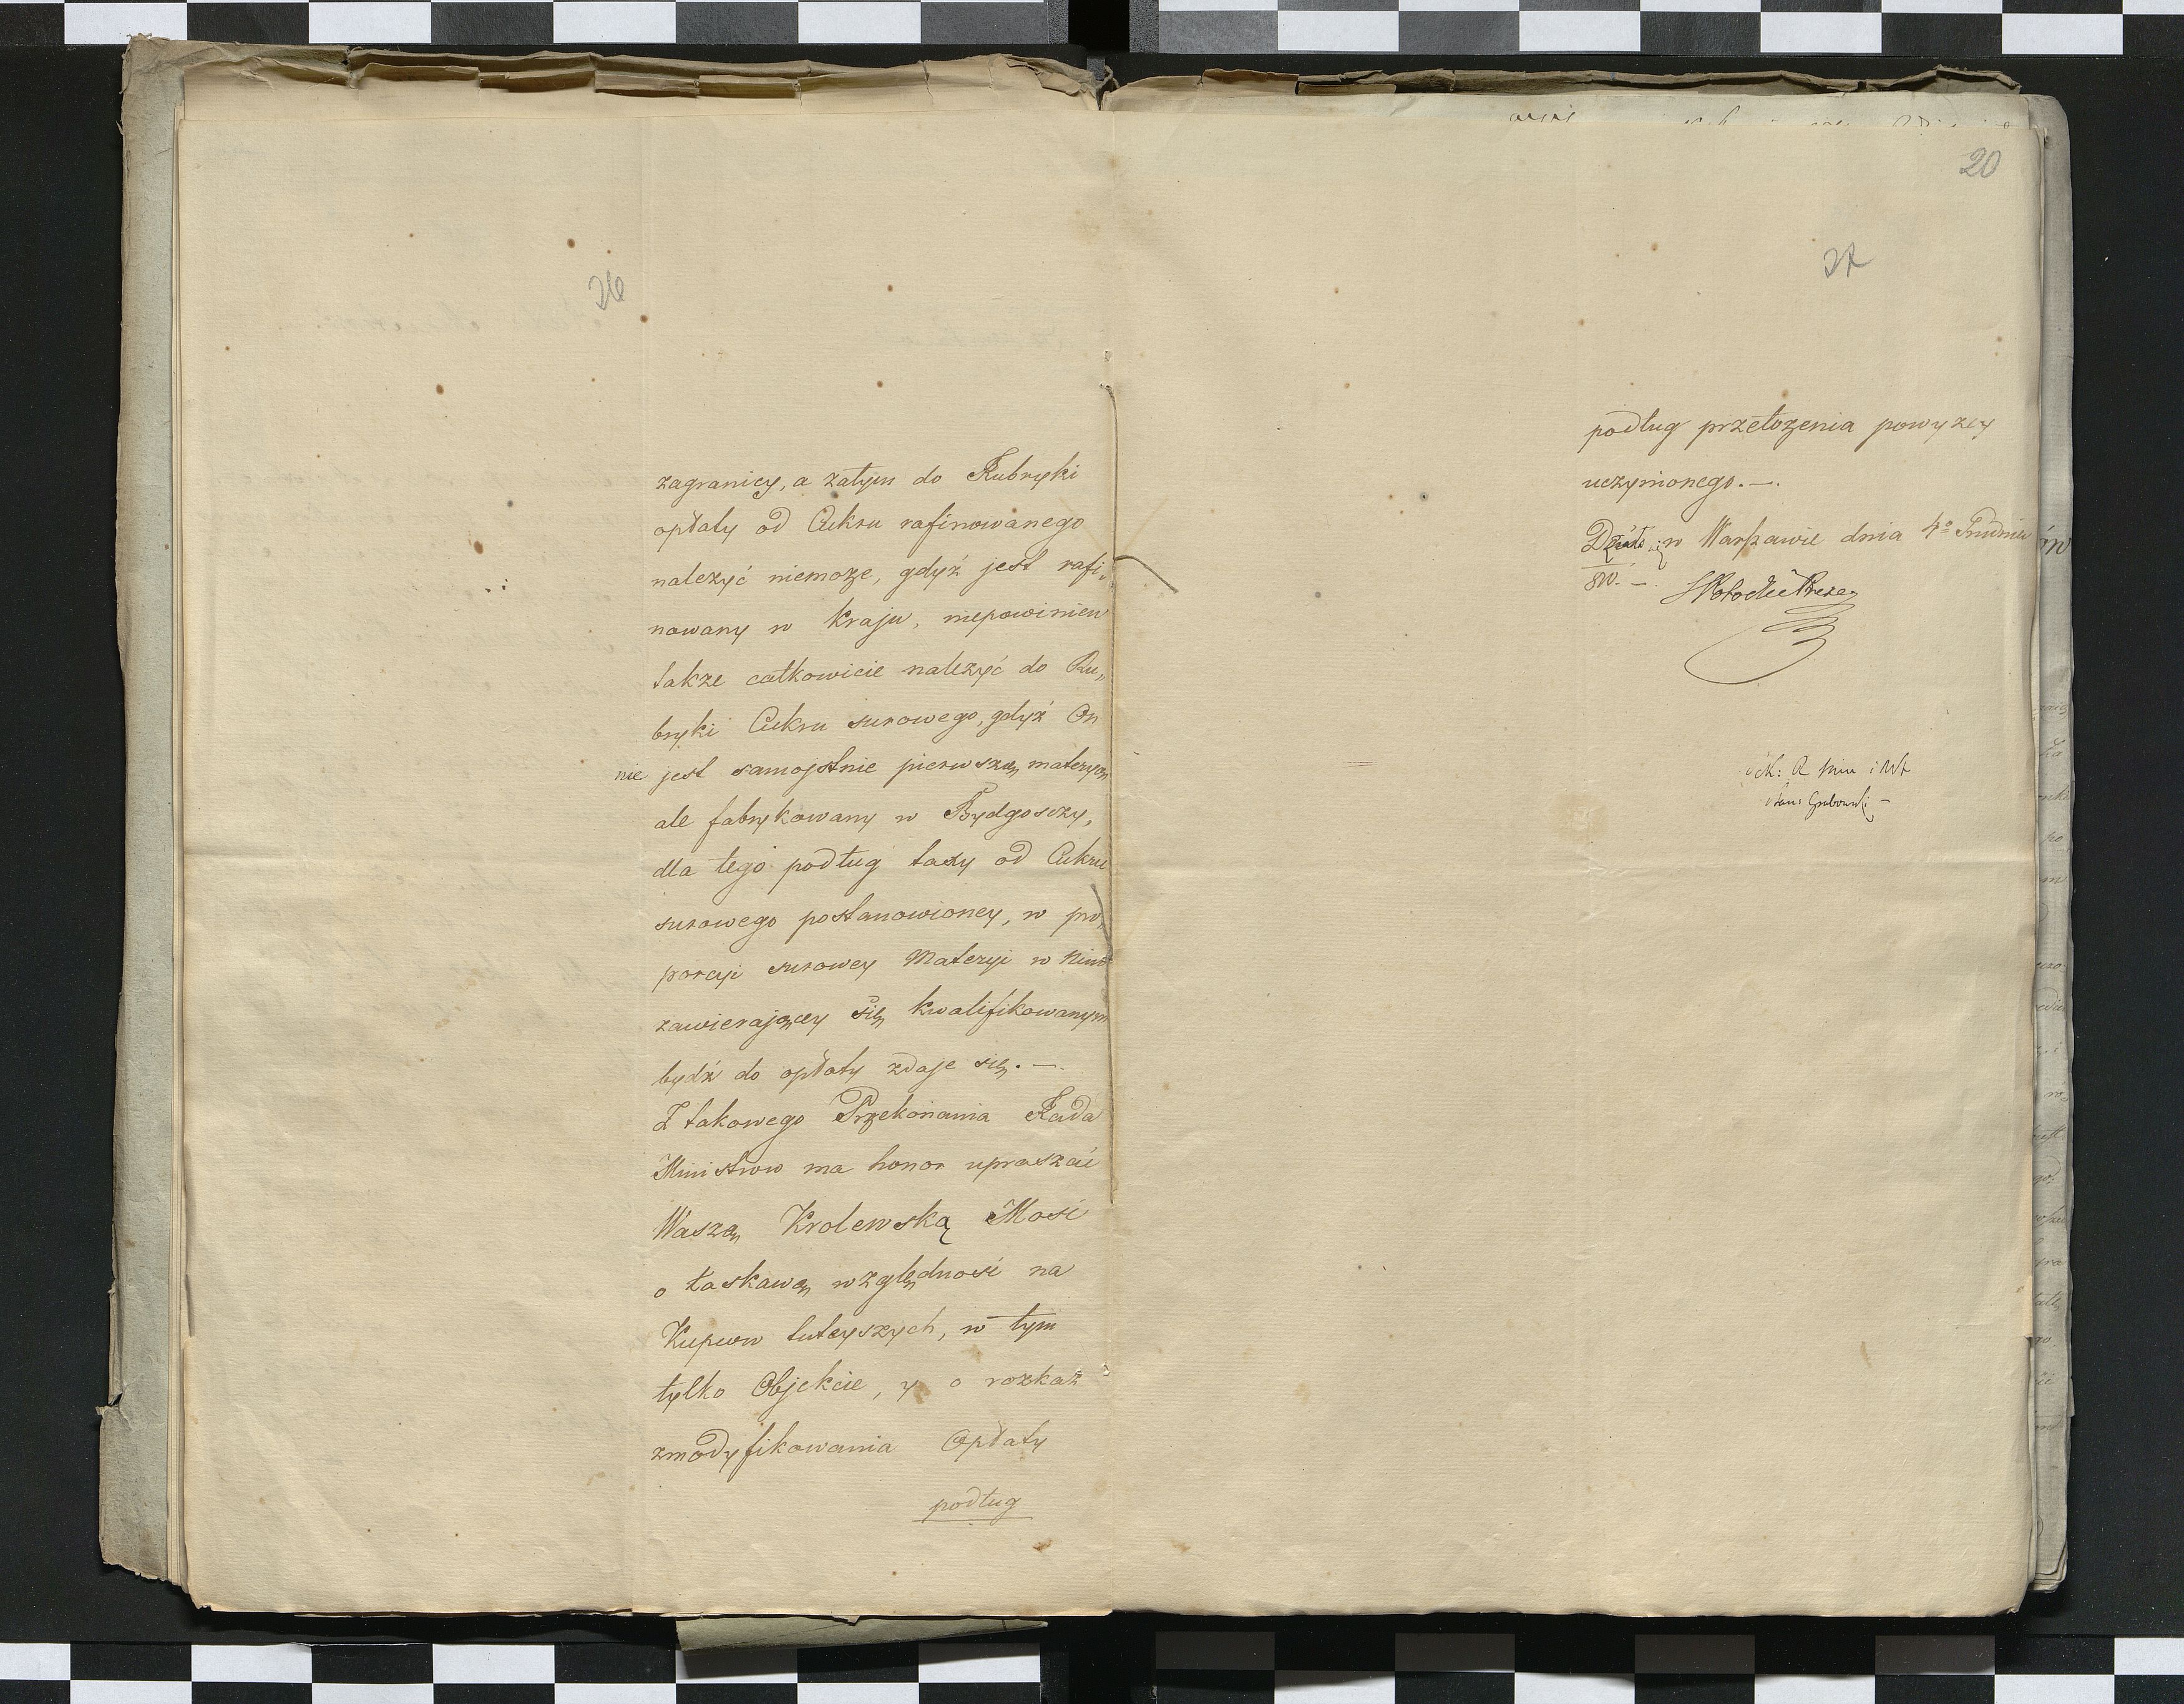 26
zagranicy, a zatym do Rubryki
opłaty od Cukru rafinowanego
należyć niemoże, gdyż jest rafi„
nowany w kraju, niepowinien
także całkowicie należyć do Ru„
bryki Cukru surowego, gdyż On
nie jest samoistnie pierwszą materyą
ale fabrykowany w Bydgoszczy,
dla tego podług taxy od Cukru
surowego postanowioney, w pro„
porcyi surowey Materyi w Nim
zawierającey się kwalifikowanym
bydź do opłaty zdaje się. —.
Z takowego Przekonania Rada
Ministrow ma honor upraszać
Waszą Krolewską Mość
o łaskawą względność na
Kupcow tuteyszych, w tym
tylko Objekcie, y o rozkaz
zmodyfikowania Opłaty
podług
20
27
podług przełożenia powyżey
uczynionego. —.
Działo się w Warszawie dnia 4º Grudnia
810. —.
Grabowski —